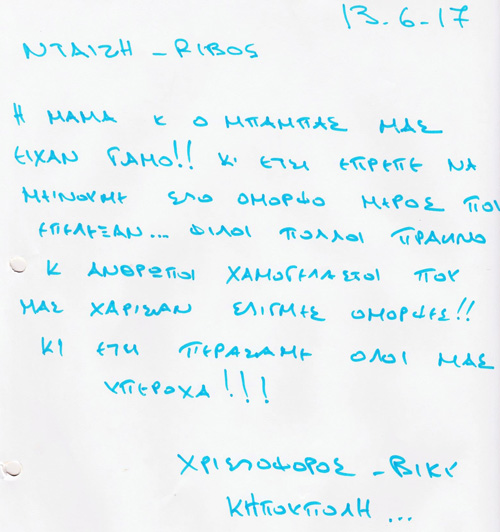 13-6-17
ΝΤΑΙΖΗ - RIBOS
Η ΜΑΜΑ Κ Ο ΜΠΑΜΠΑΣ ΜΑΣ
ΕΙΧΑΝ ΓΑΜΟ!! ΚΙ ΕΤΣΙ ΕΠΡΕΠΕ ΝΑ
ΜΕΙΝΟΥΜΕ ΣΤΟ ΟΜΟΡΦΟ ΜΕΡΟΣ ΠΟΥ
ΕΠΕΛΕΞΑΝ... ΦΙΛΟΙ ΠΟΛΛΟΙ ΠΡΑΣΙΝΟ
Κ ΑΝΘΡΩΠΟΙ ΧΑΜΟΓΕΛΑΣΤΟΙ ΠΟΥ
ΜΑΣ ΧΑΡΙΣΑΝ ΣΤΙΓΜΕΣ ΟΜΟΡΦΕΣ!!
ΚΙ ΕΤΣΙ ΠΕΡΑΣΑΜΕ ΟΛΟΙ ΜΑΣ
ΥΠΕΡΟΧΑ!!!
ΧΡΙΣΤΟΦΟΡΟΣ - ΒΙΚΥ
ΚΗΠΟΥΠΟΛΗ...